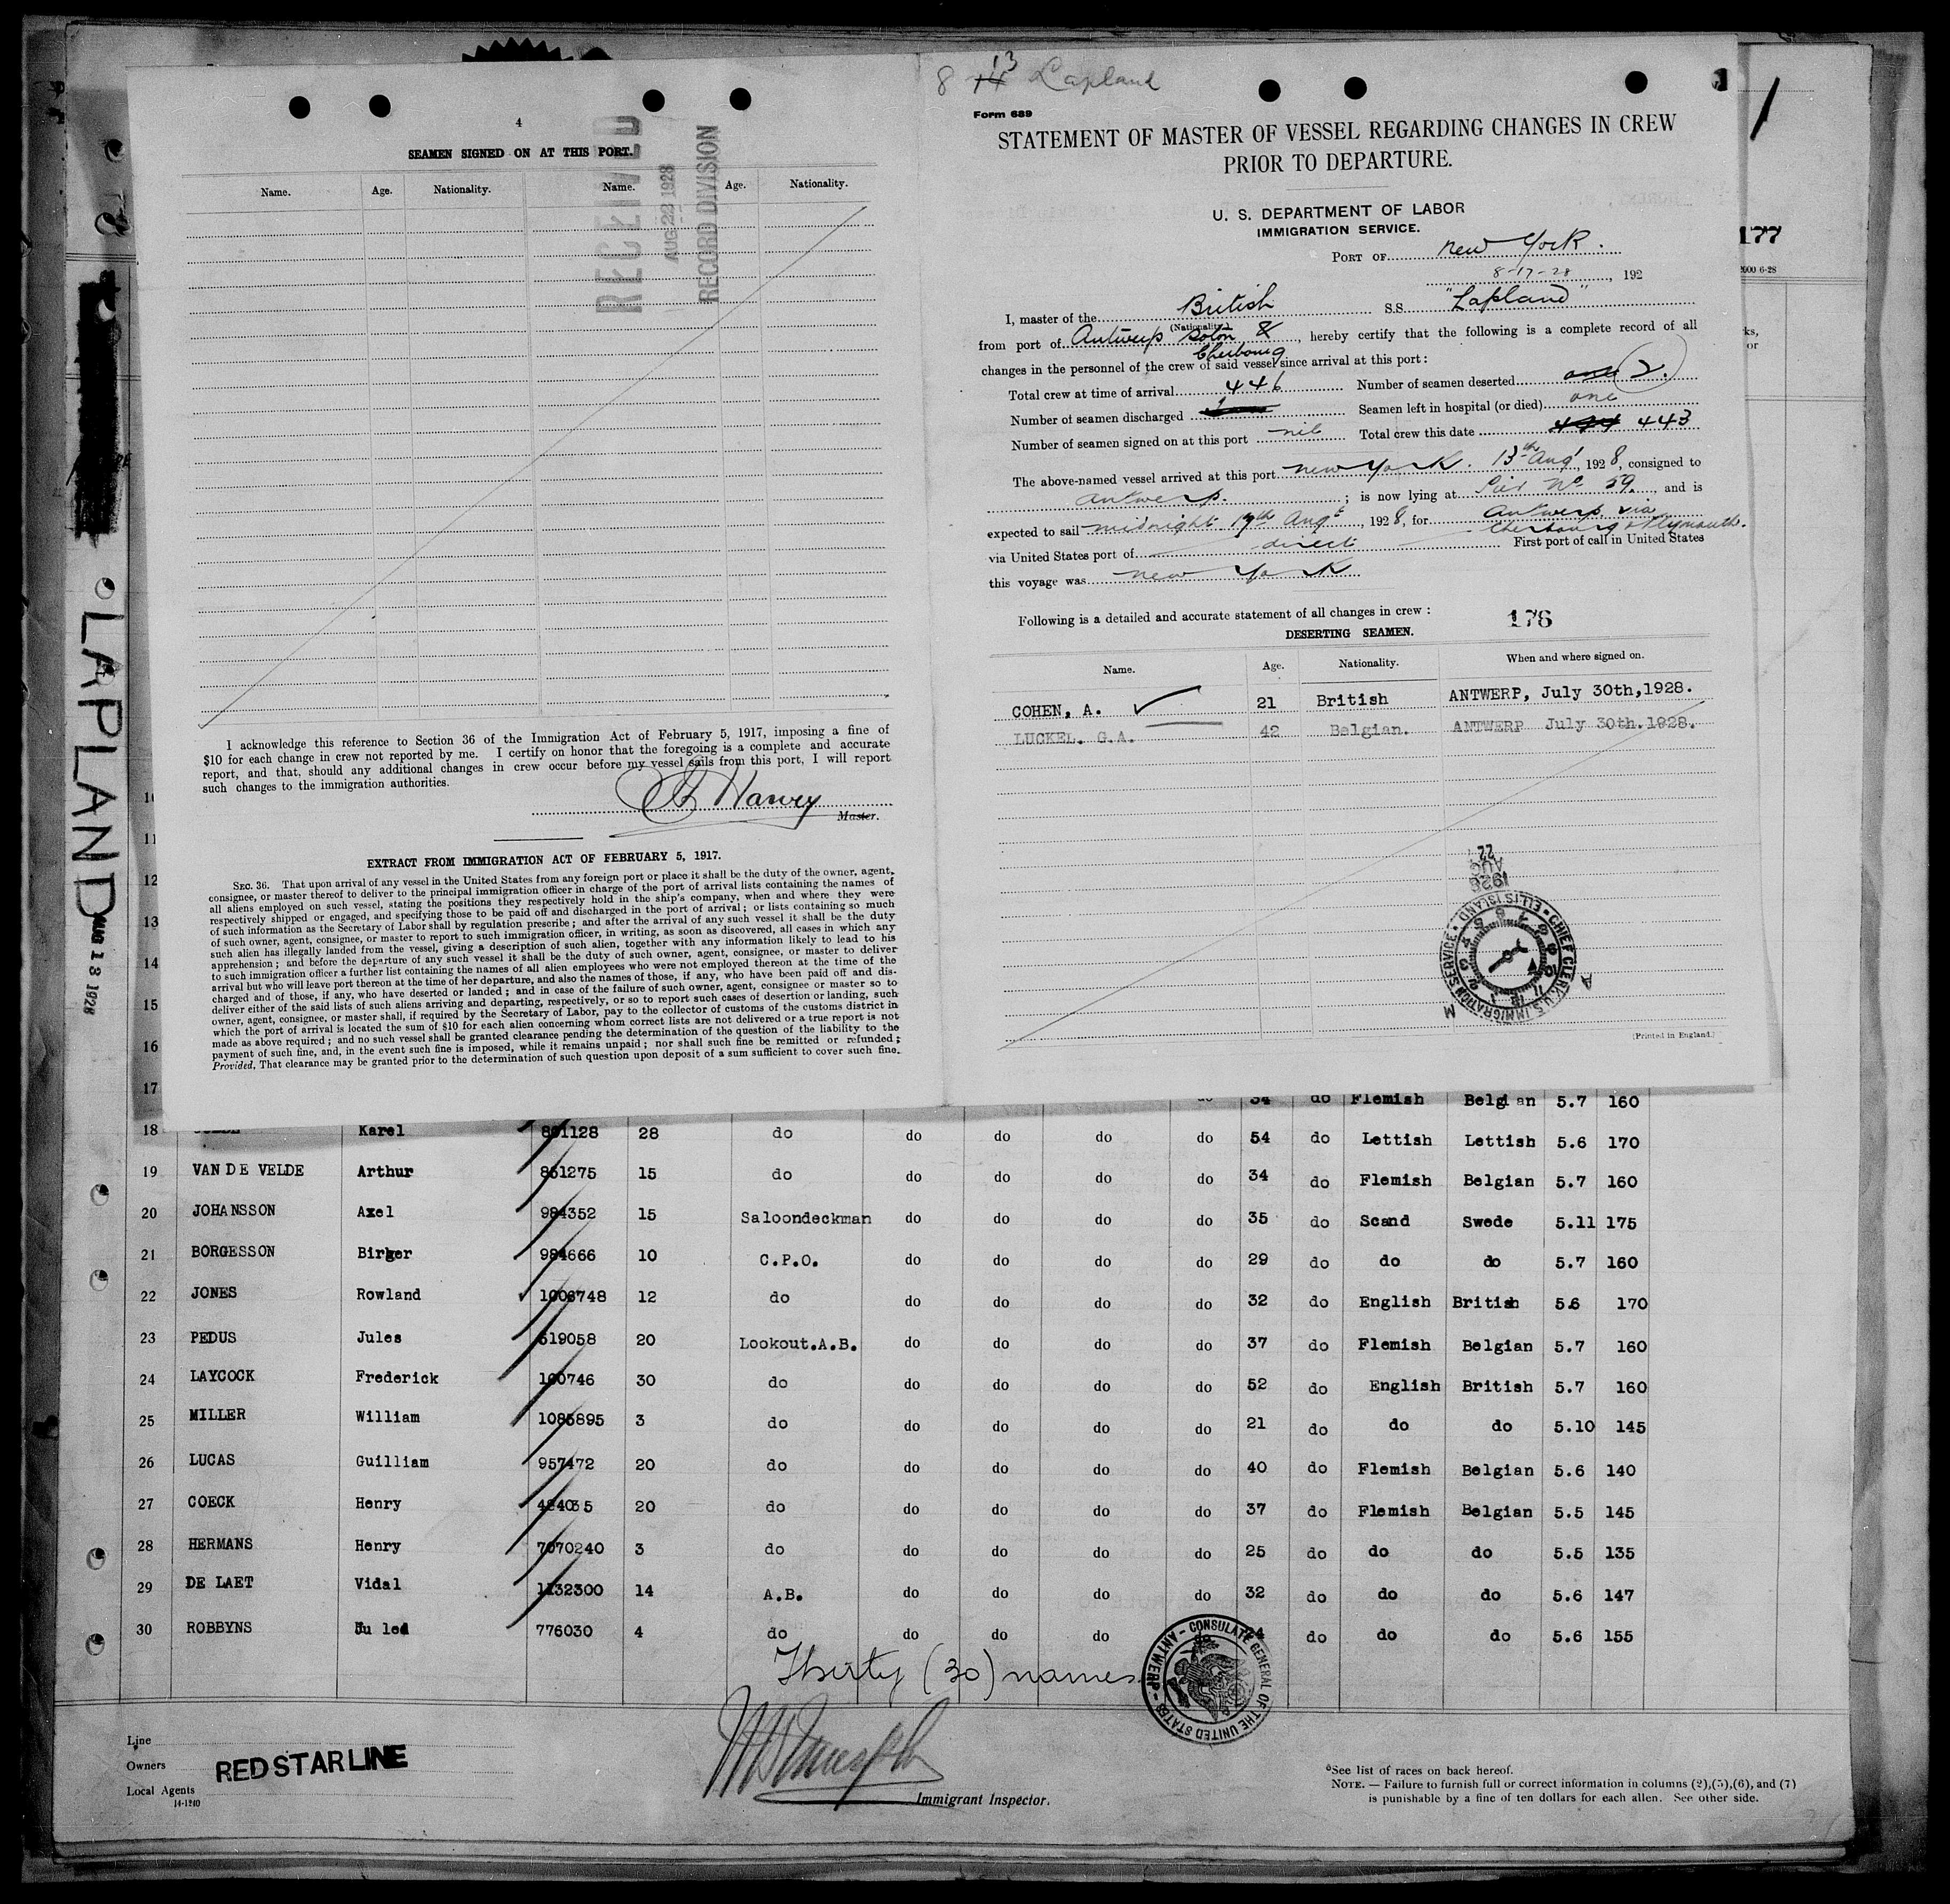 4
SEAMEN SIGNED ON AT THIS PORT.
Name. Age. Nationality. Name. Age. Nationality.
RECEIVED
AUG 22 1928
RECORD DIVISION
I acknowledge this reference to Section 36 of the Immigration Act of February 5, 1917, imposing a fine of
$10 for each change in crew not reported by me. I certify on honor that the foregoing is a complete and accurate
report, and that, should any additional changes in crew occur before my vessel sails from this port, I will report
such changes to the immigration authorities.
Harvey
Master.
EXTRACT FROM IMMIGRATION ACT OF FEBRUARY 5, 1917.
SEC. 36. That upon arrival of any vessel in the United States from any foreign port or place it shall be the duty of the owner, agent,
consignee, or master thereof to deliver to the principal immigration officer in charge of the port of arrival lists containing the names of
all aliens employed on such vessel, stating the positions they respectively hold in the ship's company, when and where they were
respectively shipped or engaged, and specifying those to be paid off and discharged in the port of arrival; or lists containing so much
of such information as the Secretary of Labor shall by regulation prescribe; and after the arrival of any such vessel it shall be the duty
of such owner, agent, consignee, or master to report to such immigration officer, in writing, as soon as discovered, all cases in which any
such alien has illegally landed from the vessel, giving a description of such alien, together with any information likely to lead to his
apprehension; and before the departure of any such vessel it shall be the duty of such owner, agent, consignee, or master to deliver
to such immigration officer a further list containing the names of all alien employees who were not employed thereon at the time of the
arrival but who will leave port thereon at the time of her departure, and also the names of those, if any, who have been paid off and dis-
charged and of those, if any, who have deserted or landed; and in case of the failure of such owner, agent, consignee or master so to
deliver either of the said lists of such aliens arriving and departing, respectively, or so to report such cases of desertion or landing, such
owner, agent, consignee, or master shall, if required by the Secretary of Labor, pay to the collector of customs of the customs district in
which the port of arrival is located the sum of $10 for each alien concerning whom correct lists are not delivered or a true report is not
made as above required; and no such vessel shall be granted clearance pending the determination of the question of the liability to the
payment of such fine, and, in the event such fine is imposed, while it remains unpaid; nor shall such fine be remitted or refunded;
Provided, That clearance may be granted prior to the determination of such question upon deposit of a sum sufficient to cover such fine.
8 14 13 Lapland
Form 689
STATEMENT OF MASTER OF VESSEL REGARDING CHANGES IN CREW
PRIOR TO DEPARTURE.
U. S. DEPARTMENT OF LABOR
IMMIGRATION SERVICE.
PORT OF New York.
8-17-28, 192
I, master of the British S.S. "Lapland"
(Nationality)
from port of Antwerp Soton & Cherbourg, hereby certify that the following is a complete record of all
changes in the personnel of the crew of said vessel since arrival at this port:
Total crew at time of arrival 446 Number of seamen deserted one 2.
Number of seamen discharged Seamen left in hospital (or died) one
Number of seamen signed on at this port nil Total crew this date 444 443
The above-named vessel arrived at this port New York. 13th Augt, 1928, consigned to
Antwerp. ; is now lying at Pier No 59, and is
expected to sail midnight 17th Augt, 1928, for Antwerp via Cherbourg & Plymouth.
via United States port of direct First port of call in United States
this voyage was New York
Following is a detailed and accurate statement of all changes in crew:
176
DESERTING SEAMEN.
Name. Age. Nationality. When and where signed on.
COHEN, A. 21 British ANTWERP, July 30th,1928.
LUCKEL. G.A. 42 Belgian. ANTWERP July 30th.1928.
22
AUG
1928
CHIEF CLERK U.S. IMMIGRATION SERVICE • ELLIS ISLAND •
A M
(Printed in England.)
177
2000 6-28
ks,
or
LAPLAND
AUG 13 1928
11
12
13
14
15
16
17 34 do Flemish Belgian 5.7 160
18 Karel 801128 28 do do do do do 54 do Lettish Lettish 5.6 170
19 VAN DE VELDE Arthur 851275 15 do do do do do 34 do Flemish Belgian 5.7 160
20 JOHANSSON Axel 984352 15 Saloondeckman do do do do 35 do Scand Swede 5.11 175
21 BORGESSON Birger 984666 10 C.P.O. do do do do 29 do do do 5.7 160
22 JONES Rowland 1006748 12 do do do do do 32 do English British 56 170
23 PEDUS Jules 619058 20 Lookout.A.B. do do do do 37 do Flemish Belgian 5.7 160
24 LAYCOCK Frederick 100746 30 do do do do do 52 do English British 5.7 160
25 MILLER William 1085895 3 do do do do do 21 do do do 5.10 145
26 LUCAS Guilliam 957472 20 do do do do do 40 do Flemish Belgian 5.6 140
27 COECK Henry 484035 20 do do do do do 37 do Flemish Belgian 5.5 145
28 HERMANS Henry 7070240 3 do do do do do 25 do do do 5.5 135
29 DE LAET Vidal 1132300 14 A.B. do do do do 32 do do do 5.6 147
30 ROBBYNS 776030 4 do do do do do do do do 5.6 155
Thirty (30) names
CONSULATE GENERAL OF THE UNITED STATES - ANTWERP. -
Line
Owners RED STAR LINE
Local Agents
14-1240
Immigrant Inspector.
*See list of races on back hereof.
NOTE. — Failure to furnish full or correct information in columns (2),(5),(6), and (7)
is punishable by a fine of ten dollars for each alien. See other side.